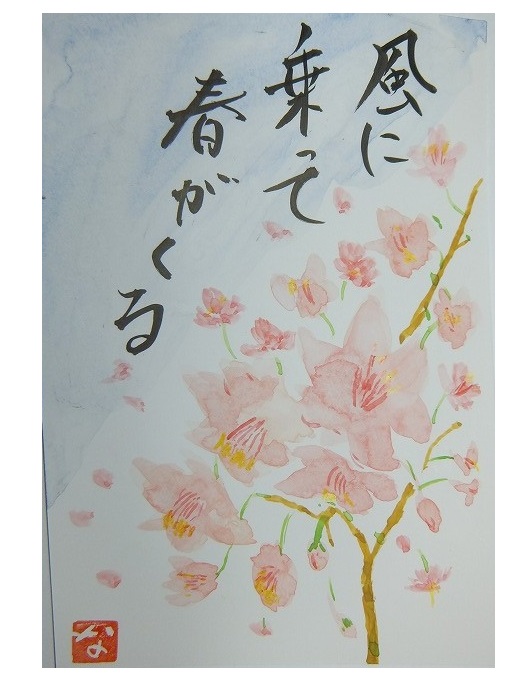 風に
乗って
春がくる
な